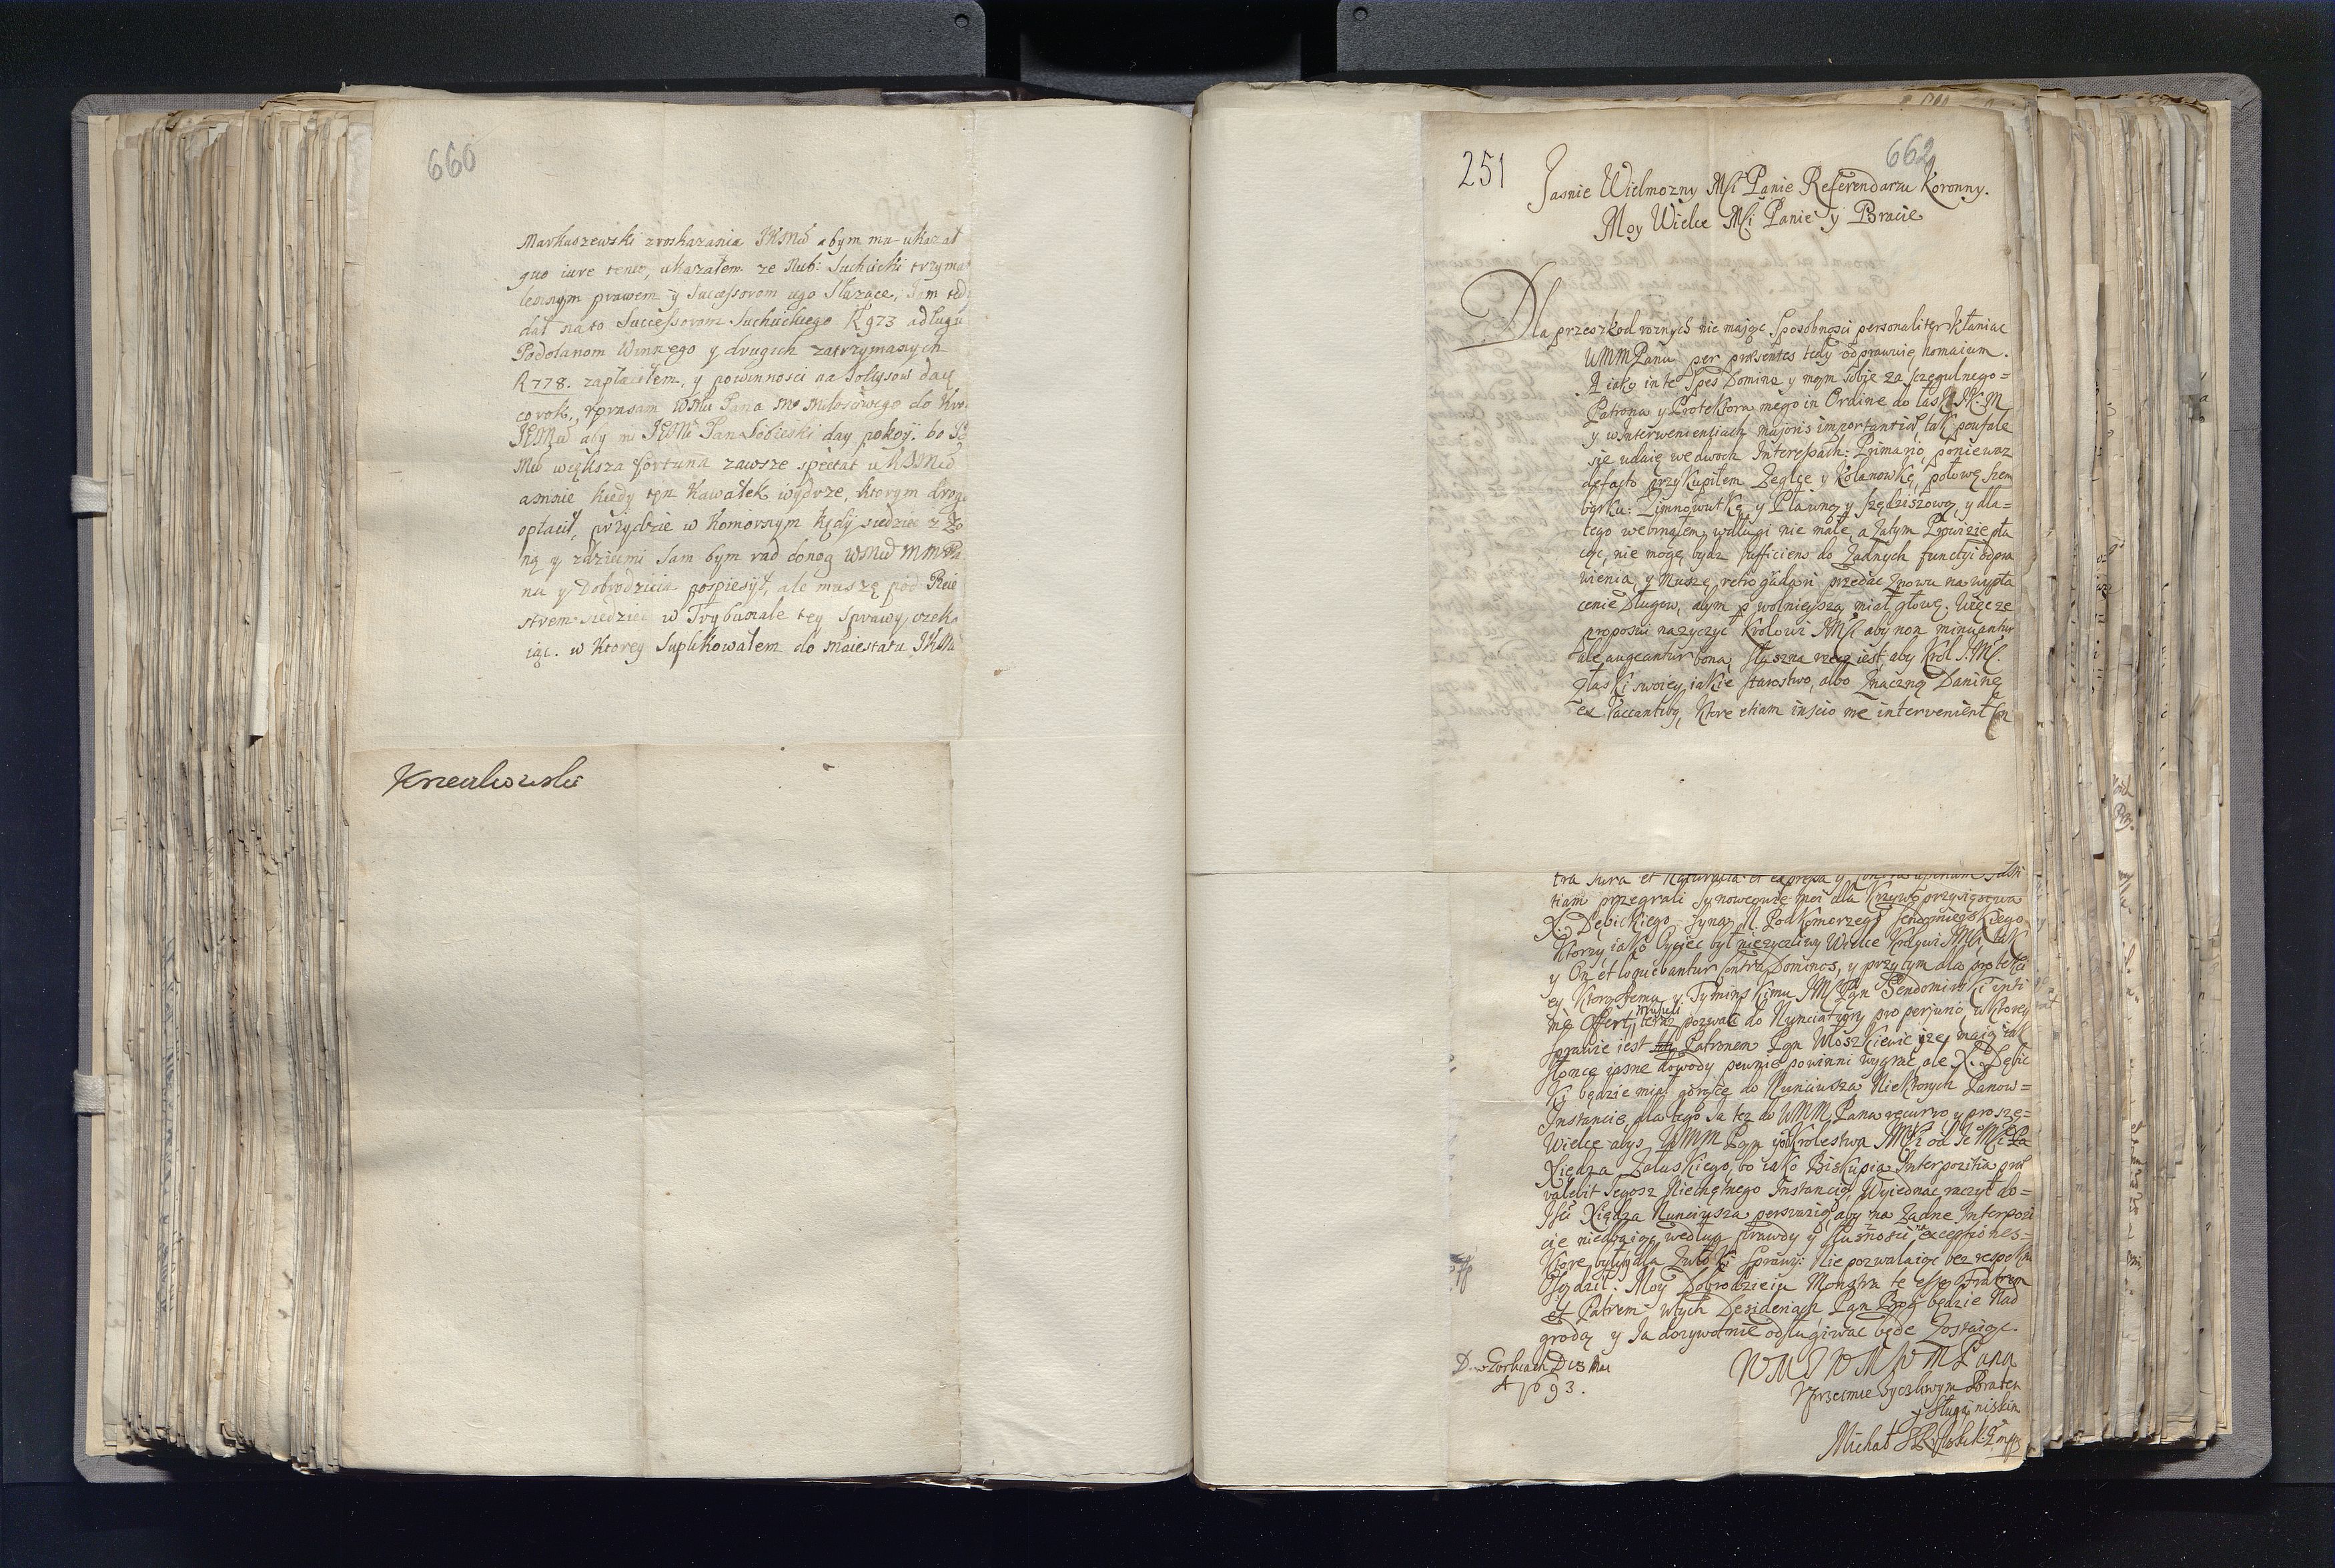 660
Markuszewski zroskazania JKMci abym mu ukazał
quo iure teneo, ukazałem ze Nob: Suchicki trzymał
lennym prawem y Successorom iego służące, Tam tedy
dał na to Successorom Suchickiego R 973 a długu
Podolanom Winnego y drugich zatrzymanych
R 778. zapłaciłem, y powinnosci na Sołtysow daię
co rok, upraszam WMci Pana Mo Miłosciwego do Kro
JKMci aby mi JEMć Pan Sobieski dał pokoy: bo
Mci większa fortuna zawsze spectat u KJMci
amnie kiedy ten Kawałek wydrze, ktorym drogo
opłacił, przydzie w Komornym kędy siedziec z Zo
ną y zdziecmi Sam bym rad do nog WMci MM Pa
na y Dobrodzieia pospieszył, ale muszę pod Reie
strem siedziec w Trybunale tey sprawy czeka
iąc. w ktorey Suplikowałem do Maiestatu JKMci
Krzeczkowski
251
662
Jasnie Wielmozny Mci Panie Referendarzu Koronny.
Moy Wielce Mci Panie y Bracie
Dla przeszkod roznych nie maiąc sposobnosci personaliter kłaniac
WMMPanu per praesentes tedy odprawuię homagium.
A iako in te Spes Domine y mam sobie za szczegulnego=
Patrona y Protektora mego in Ordine do łask JK.M
y w interwenienciach majoris importantiae, tak poufale
się udaię we dwoch Interessach: Primario, poniewaz
de facto przykupiłem Zeglce y Kolanowkę, połowę Szem
byrku: Zimnowutkę y Pławną y Szędziszową, y dla=
tego webrnąłem w długi nie małe, a Zatym Prowizie pła
cąc, nie mogę bydz sufficiens do Zadnych functyi odpra
wienia, y Muszę retrogradari przedac Znowu na wypła
cenie Długow, abym wolnieyszą miał głowę. Więc ze
proposui nazyczyc Krolowi JMci aby non minuantur
ale augeantur bona, słuszna rzecz iest, aby Krol J.Mć.
Złaski swoiey iakie Starostwo, albo Znaczną Daninę
ex Vaccantibus, Ktore etiam inscio me intervenient Con
tra Jura et Naturalia et expressa y
tiam przegrali Synowcowie moi dla Krzywoprzysięstwa
X. Dębickiego Syna N. Podkomorzego Sendomirskiego
Ktorzy iako Oyciec był niezyczliwy Wielce Krolowi JMci, tak
y On, et loquebantur Contra Dominos, y przytym dla protekci
ey Ktorą temu y Tyminskiemu JMć Pan Sendomirski inti
me Offert, musieli pozwac do Nunciatury pro perjurio, w Ktorey
sprawie iest Patronem Pan Moszkiewic ize maią iak
słonce iasne dowody pewnie powinni wygrac, ale X. Dębic
Ki będzie miał gorącą do Nunciusza Niektorych Panow=
Instancię, dla tego Ja tez do WMM Pana recurro y proszę=
Wielce abys WMM Pan Krolestwa JMci od Je Mci
Xiędza Załuskiego, bo iako Biskupia Interpozitia prae
valebit Tegosz Niechętnego Instancią, Wyiednac raczył do=
JMci Xiędza Nunciusza perswazią, aby na Zadne Interpozi
cie niedbaiąc według prawdy y słusznosci, na exceptiones=
Ktore były dla Zwłoki Sprawy: Nie pozwalaiąc bez respektu
Osądził. Moy Dobrodzieiu Monstra te esse Fratrem
et Patrem wtych Desideriach Pan Bog będzie Nad
grodą y Ja dozywotnie odsługiwac będe Zostaiąc.
WMMMM Pana
Uprzeimie Zyczliwym Bratem
y sługą niskim
D. w Gorlicach D 13 Mai
A 1693.
Michał